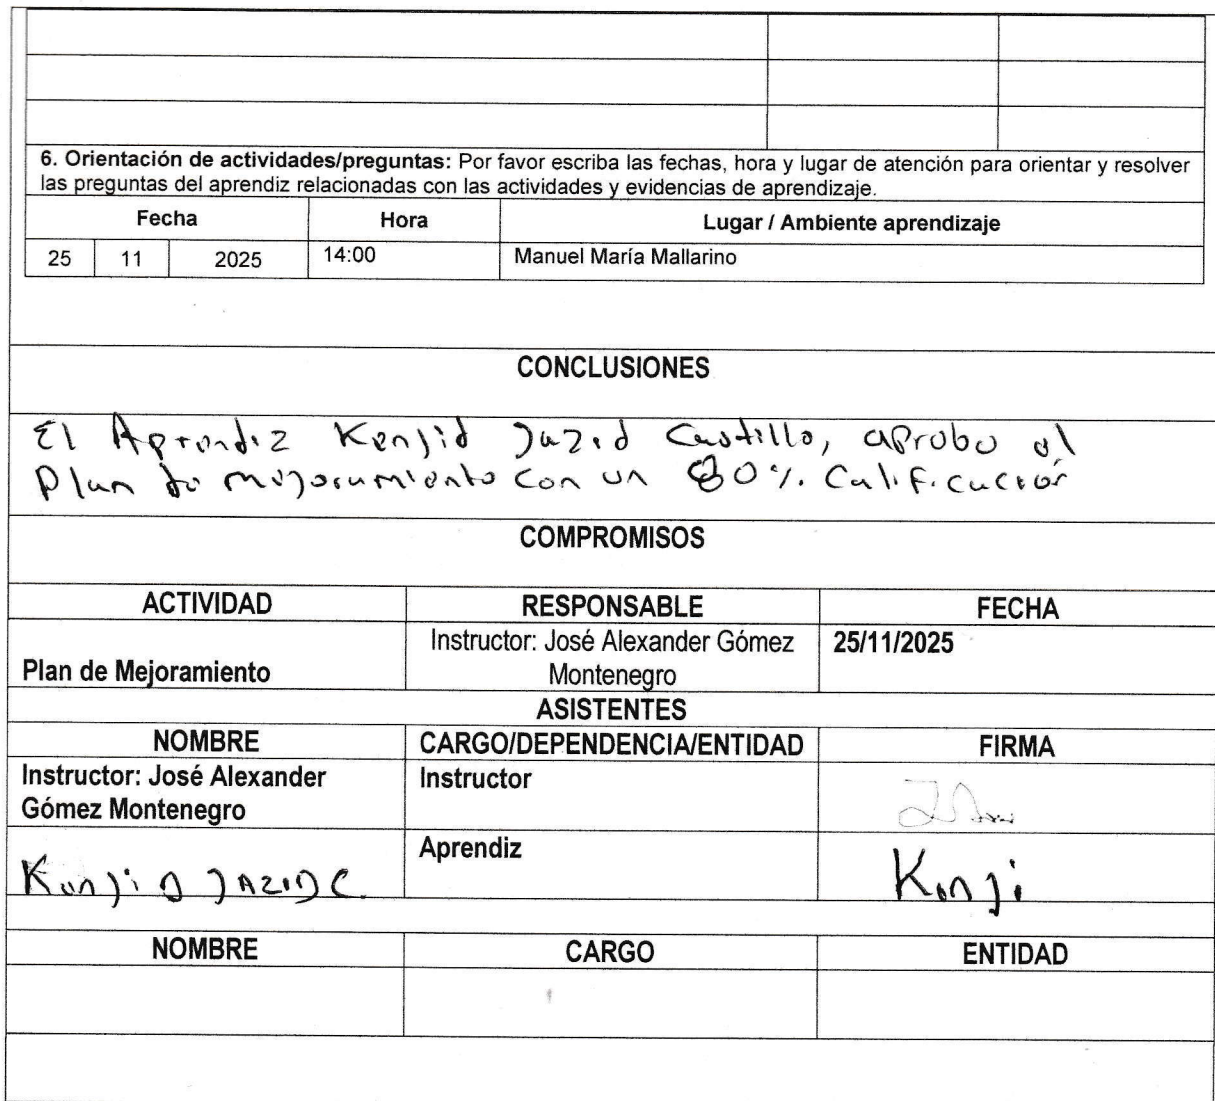 6. Orientación de actividades/preguntas: Por favor escriba las fechas, hora y lugar de atención para orientar y resolver
las preguntas del aprendiz relacionadas con las actividades y evidencias de aprendizaje.
Fecha Hora Lugar / Ambiente aprendizaje
25 11 2025 14:00 Manuel María Mallarino
CONCLUSIONES
El Aprendiz Kenjid Jazid Castillo, aprobo el
Plan de mejoramiento con un 80%. Calificación
COMPROMISOS
ACTIVIDAD RESPONSABLE FECHA
Plan de Mejoramiento Instructor: José Alexander Gómez 25/11/2025
Montenegro
ASISTENTES
NOMBRE CARGO/DEPENDENCIA/ENTIDAD FIRMA
Instructor: José Alexander Instructor
Gómez Montenegro
Aprendiz
KenjiD JAZID C. Kenji
NOMBRE CARGO ENTIDAD